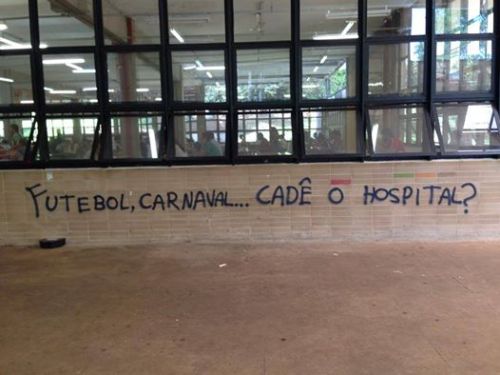 FUTEBOL, CARNAVAL... CADÊ O HOSPITAL?